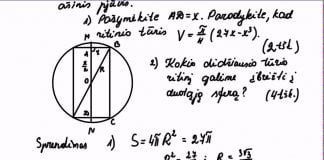 ašinis pjūvis.
1) Pažymėkite AD=x. Parodykite, kad
ritinio tūris V = π/4 (27x-x³).
(2 tšk.)
2) Kokio didžiausio tūrio
ritinį galime įbrėžti į
duotąją sferą? (4 tšk.)
M
A r B
x/2
R
O
D C
N
Sprendimas 1) S=4πR²=27π
R²=27/4 ; R=3√3